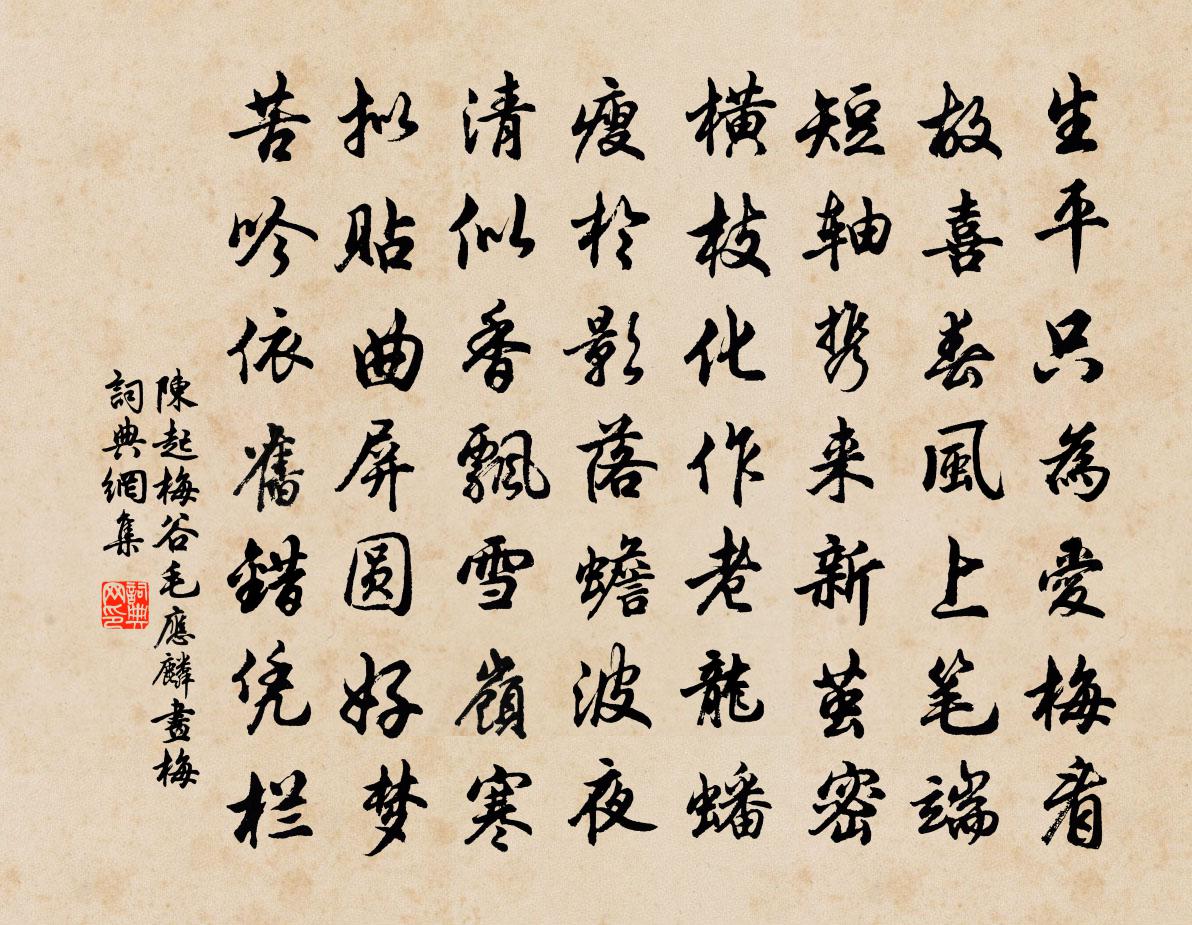 生平只為愛梅看
放喜春風上笔端
短轴携来新茧密
横枝化作老龍蟠
瘦於影落蟾波夜
清似香飄雪嶺寒
拟貼曲屏圆好梦
苦吟依舊錯凭栏
陳起梅谷毛應麟畫梅
詞典網集
詞典网印